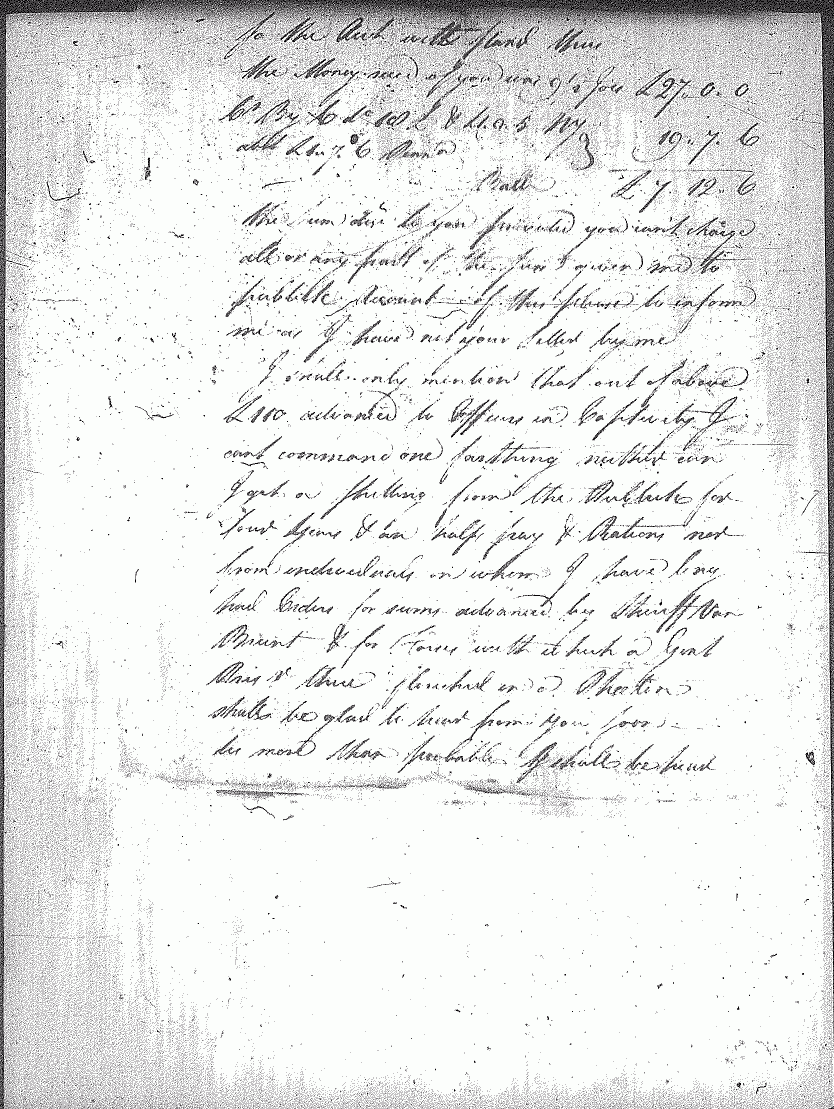 so the Acct will stand thus
the Money recd of you was 9 Joes £27. 0. 0
Cr By 6 do 18 £ & £1. 0. 5 NY
add £1. 7. 6 Penna } 19. 7. 6
Ball £ 7. 12. 6
the sum due to you provided you cant charge
all or any part of the sum given me to
publick Account of this please to inform
me as I have not your letter by me
I shall only mention that out of above
£100 advanced to Officers in Captivity I
cant command one farthing neither can
I get a shilling from the Publick for
four Years & an half pay & Rations nor
from individuals on whom I have long
had Orders for sums advanced by Sheriff Van
Brunt & for with which a Gent
this & these in a
shall be glad to hear from you soon
tis more than probable I shall be here